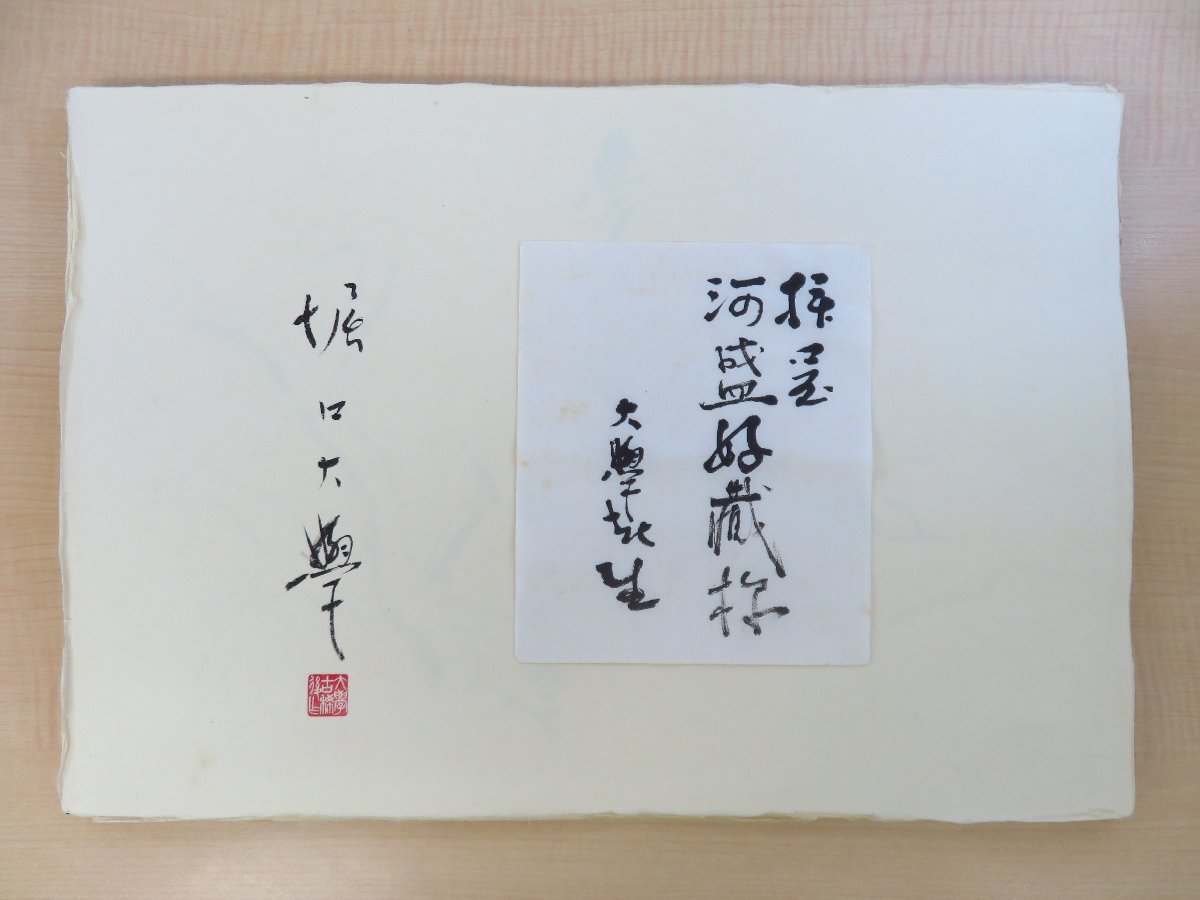 拝呈
河盛好藏様
大學老生
堀口大學
大學
古稀